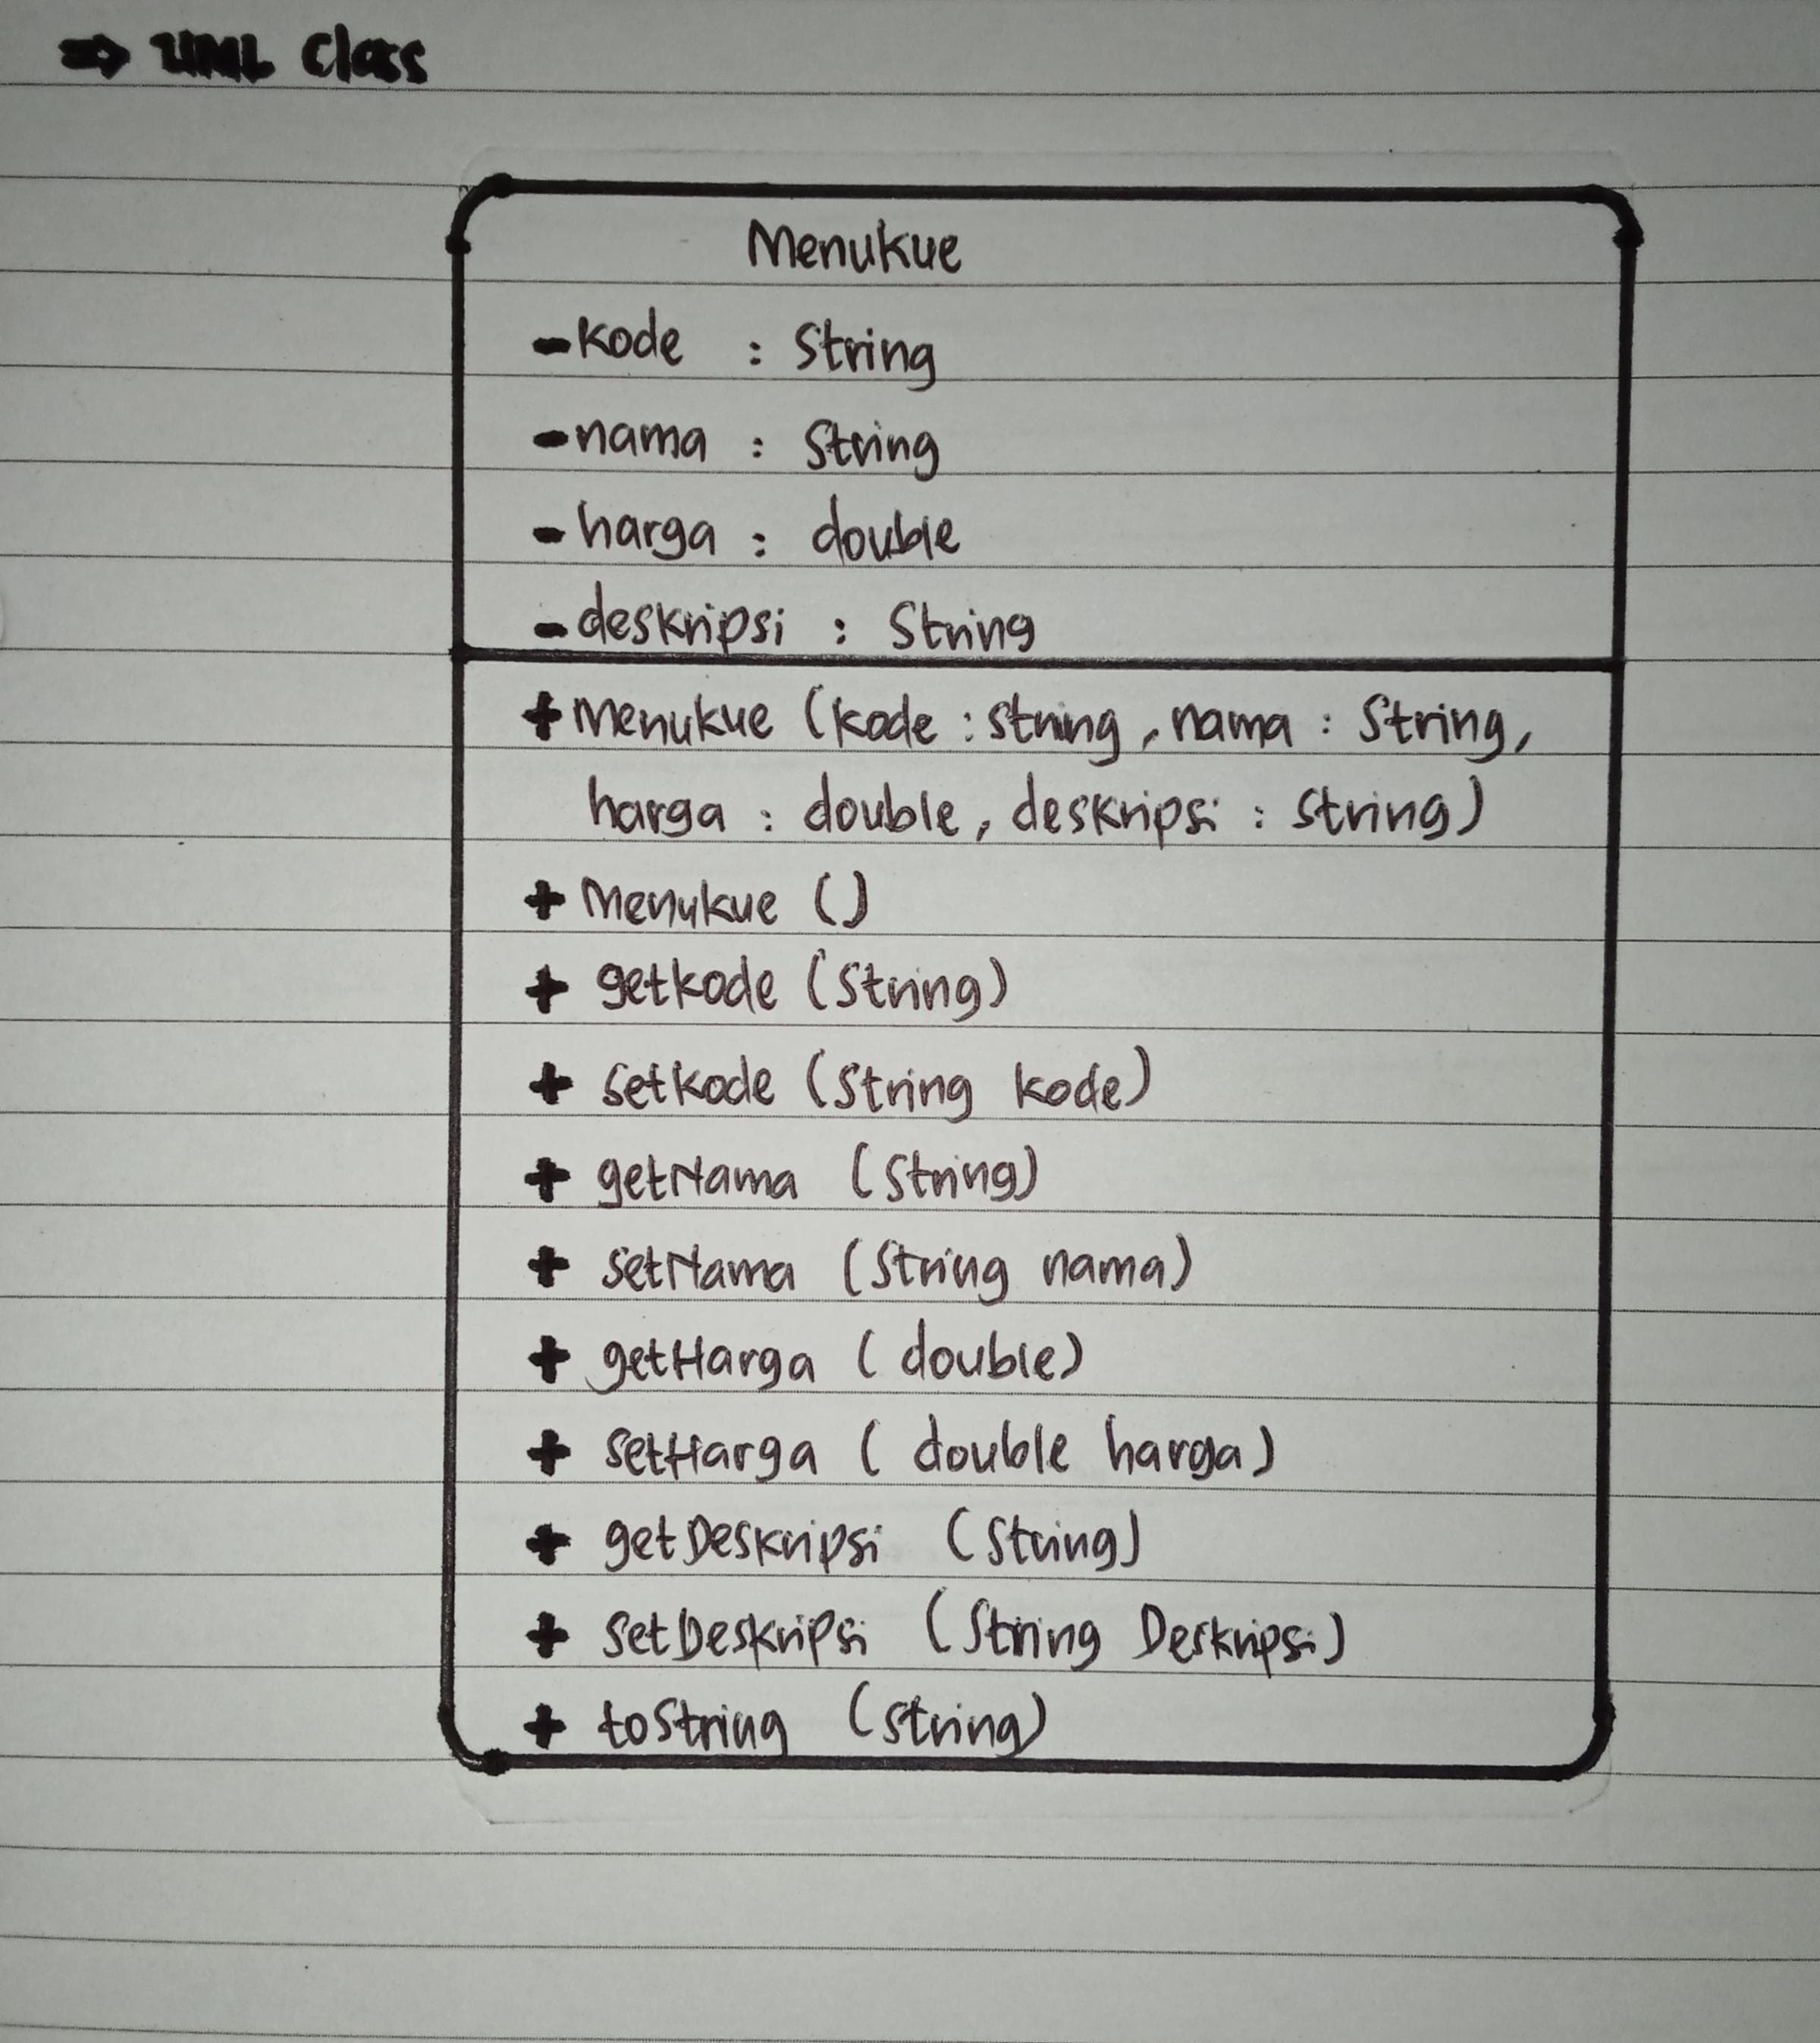 ⇒ UML Class
Menukue
- kode : String
- nama : String
- harga : double
- deskripsi : String
+ Menukue (kode : string, nama : String,
harga : double, deskripsi : String)
+ Menukue ()
+ getkode (String)
+ setkode (String kode)
+ getNama (String)
+ setNama (String nama)
+ getHarga ( double)
+ setHarga ( double harga)
+ getDeskripsi (String)
+ setDeskripsi (String Deskripsi)
+ toString (String)